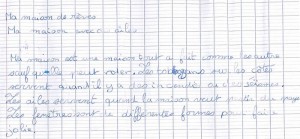 Ma maison de rêves
Ma maison avec ailes
Ma maison est une maison tout a fait comme les autre
sauf qu'elle peut voler, des sur les côtés
souvent quant il y a des incendi ou
Les ailes souvent quand la maison veut du pays
Les fenêtres de différentes formes
jolie.